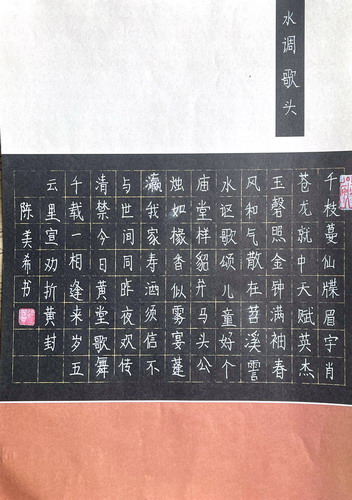 水调歌头
千枝蔓仙牒眉宇肖
苍龙就中天赋英杰
玉磬照金钟满袖春
风和气散在苕溪霅
水讴歌颂儿童好个
庙堂样貂并马头公
烛如椽香似雾宴蓬
瀛我家寿酒须信不
与世间同昨夜欢传
清禁今日黄堂歌舞
千载一相逢来岁五
云里宣劝折黄封
陈美希书